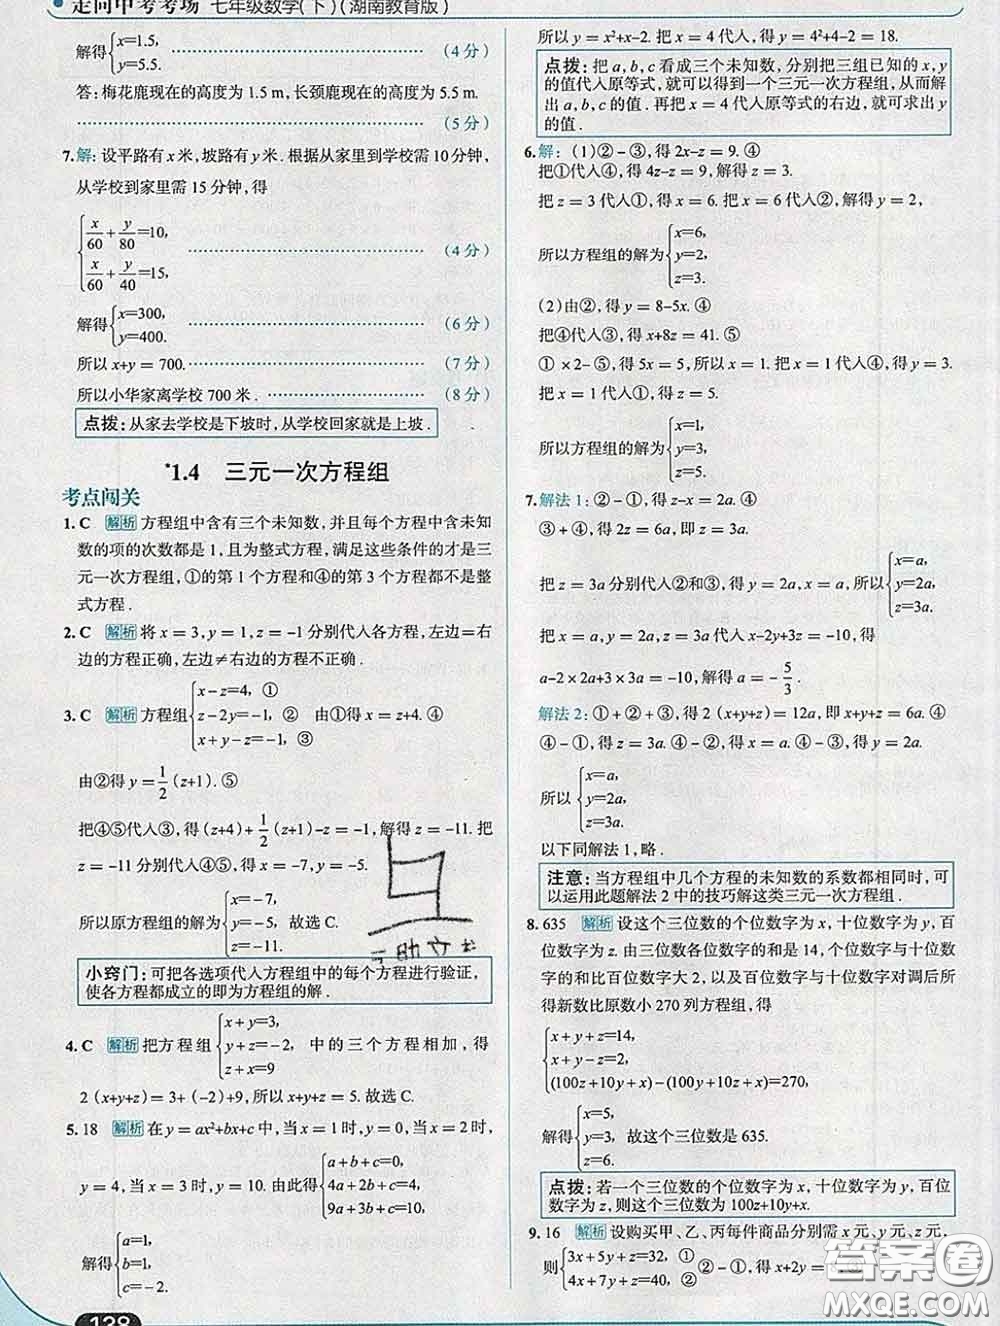 走向中考考场 七年级数学(下)(湖南教育版)
解得{x=1.5, y=5.5. (4分)
答:梅花鹿现在的高度为1.5 m,长颈鹿现在的高度为5.5 m.
(5分)
7.解:设平路有x米,坡路有y米.根据从家里到学校需10分钟,
从学校到家里需15分钟,得
{x/60+y/80=10,
x/60+y/40=15, (4分)
解得{x=300, y=400. (6分)
所以x+y=700. (7分)
所以小华家离学校700米. (8分)
点拨:从家去学校是下坡时,从学校回家就是上坡.
*1.4 三元一次方程组
考点闯关
1.C 解析 方程组中含有三个未知数,并且每个方程中含未知
数的项的次数都是1,且为整式方程,满足这些条件的才是三
元一次方程组,①的第1个方程和④的第3个方程都不是整
式方程.
2.C 解析 将x=3,y=1,z=-1分别代入各方程,左边=右
边的方程正确,左边≠右边的方程不正确.
3.C 解析 方程组{x-z=4,① z-2y=-1,② x+y-z=-1,③ 由①得x=z+4.④
由②得y=1/2(z+1).⑤
把④⑤代入③,得(z+4)+1/2(z+1)-z=-1,解得z=-11.把
z=-11分别代入④⑤,得x=-7,y=-5.
所以原方程组的解为{x=-7, y=-5, z=-11. 故选C.
小窍门:可把各选项代入方程组中的每个方程进行验证,
使各方程都成立的即为方程组的解.
4.C 解析 把方程组{x+y=3, y+z=-2, z+x=9 中的三个方程相加,得
2(x+y+z)=3+(-2)+9,所以x+y+z=5.故选C.
5.18 解析 在y=ax²+bx+c中,当x=1时,y=0,当x=2时,
y=4,当x=3时,y=10.由此得{a+b+c=0, 4a+2b+c=4, 9a+3b+c=10.
解得{a=1, b=1, c=-2.
138
所以y=x²+x-2.把x=4代入,得y=4²+4-2=18.
点拨:把a,b,c看成三个未知数,分别把三组已知的x,y
的值代入原等式,就可以得到一个三元一次方程组,从而解
出a,b,c的值.再把x=4代入原等式的右边,就可求出y
的值.
6.解:(1)②-③,得2x-z=9.④
把①代入④,得4z-z=9,解得z=3.
把z=3代入①,得x=6.把x=6代入②,解得y=2,
所以方程组的解为{x=6, y=2, z=3.
(2)由②.得y=8-5x.④
把④代入③,得x+8z=41.⑤
①×2-⑤,得5x=5,所以x=1.把x=1代入④,得y=3.
把x=1代入①,得z=5.
所以方程组的解为{x=1, y=3, z=5.
7.解法1:②-①,得z-x=2a.④
③+④,得2z=6a,即z=3a.
把z=3a分别代入②和③,得y=2a,x=a,所以{x=a, y=2a, z=3a.
把x=a,y=2a,z=3a代入x-2y+3z=-10,得
a-2×2a+3×3a=-10,解得a=-5/3.
解法2:①+②+③,得2(x+y+z)=12a,即x+y+z=6a.④
④-①,得z=3a.④-②,得x=a.④-③,得y=2a.
所以{x=a, y=2a, z=3a.
以下同解法1,略.
注意:当方程组中几个方程的未知数的系数都相同时,可
以运用此题解法2中的技巧解这类三元一次方程组.
8.635 解析 设这个三位数的个位数字为x,十位数字为y,百
位数字为z.由三位数各位数字的和是14,个位数字与十位数
字的和比百位数字大2,以及百位数字与十位数字对调后所
得新数比原数小270列方程组,得
{x+y+z=14,
x+y-z=2,
(100z+10y+x)-(100y+10z+x)=270,
解得{x=5, y=3, z=6. 故这个三位数是635.
点拨:若一个三位数的个位数字为x,十位数字为y,百位
数字为z,则这个三位数为100z+10y+x.
9.16 解析 设购买甲、乙、丙每件商品分别需x元、y元、z元,
则{3x+5y+z=32,① 4x+7y+z=40,② ②-①,得x+2y=
答案圈
MXQE.COM